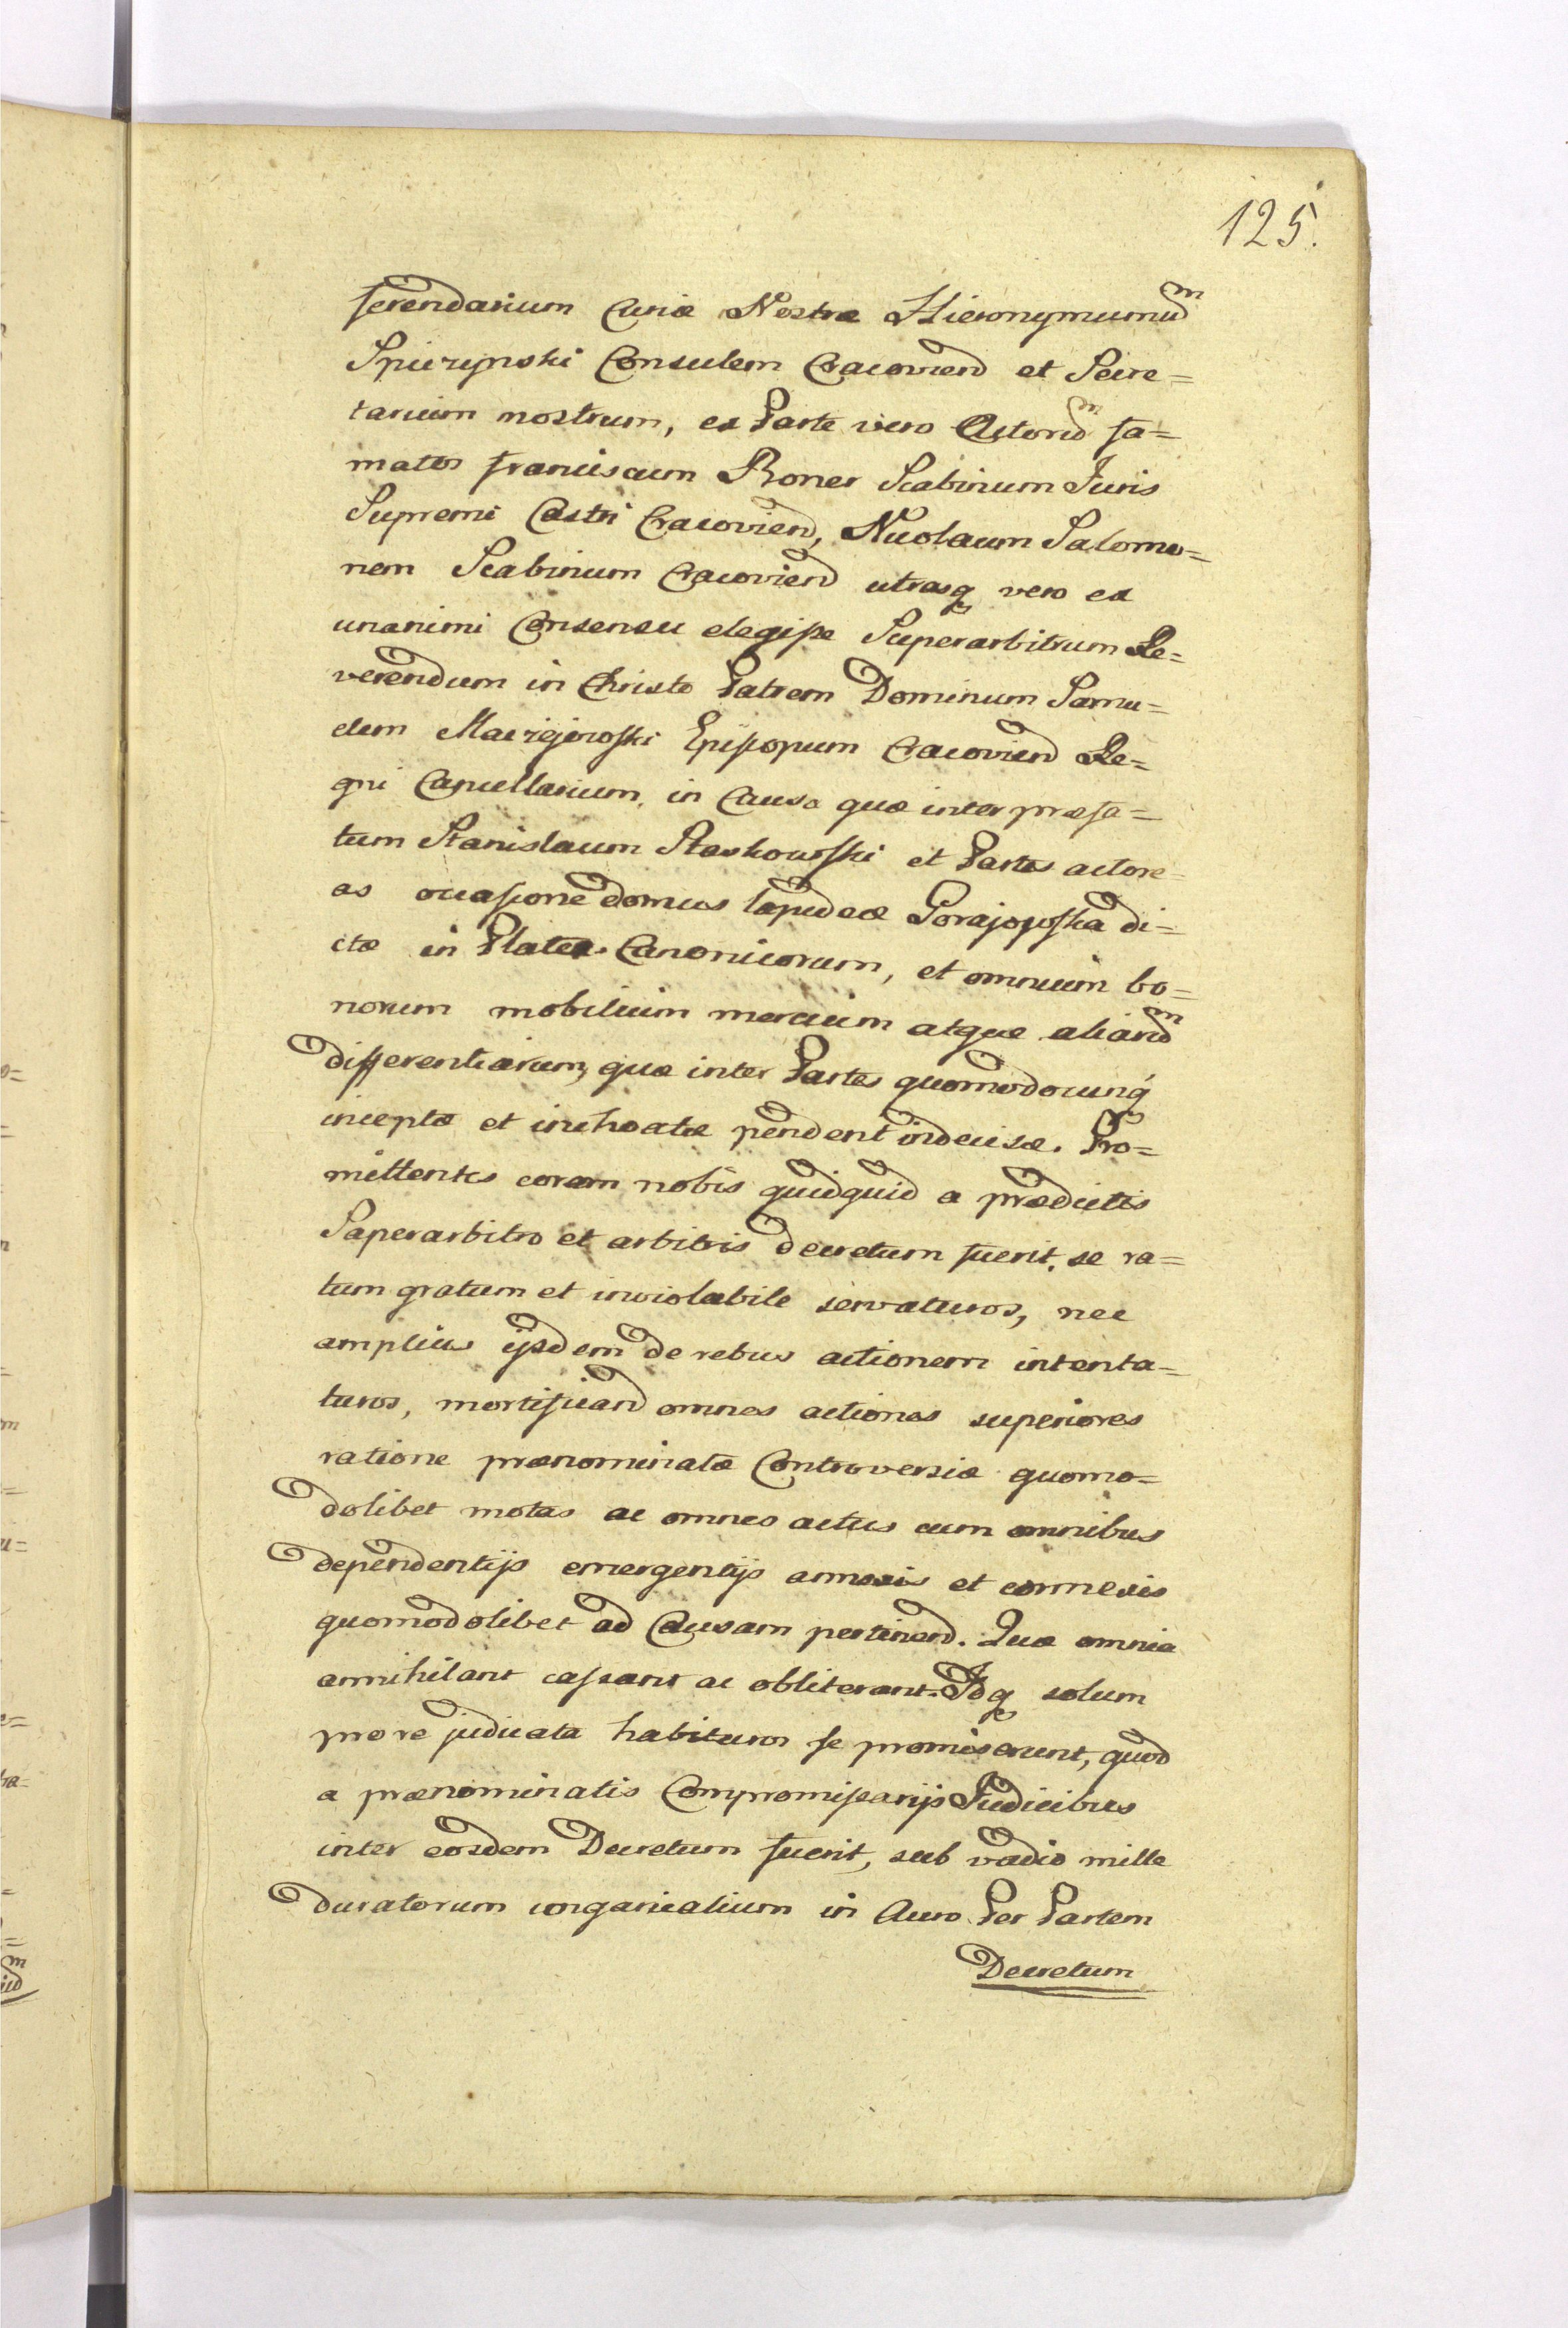 125.
ferendarium Curiæ Nostræ Hieronymum
Spiczynski Consulem Cracovien et Secre=
tarium nostrum, ex Parte vero Actoru͠m fa=
matos Franciscum Boner Scabinum Juris
Supremi Castri Cracovien, Nicolaum Salomo=
nem Scabinum Cracovien utrasq vero ex
unanimi Consensu elegisse Superarbitrum Re=
verendum in Christo Patrem Dominum Samu=
elem Maciejowski Episcopum Cracovien Re=
gni Cancellarium, in Causa quæ inter præfa=
tum Stanislaum Staskowski et Partes actore=
as occasione domus lapideæ di=
ctæ in Platea Canonicorum, et omnium bo=
norum mobilium mercium atque aliaru͠m
differentiarum, quæ inter Partes quomodocunq
inceptæ et inchoatæ pendent indecisæ. Pro=
mittentes coram nobis quidquid a prædictis
Superarbitro et arbitris decretum fuerit, se ra=
tum gratum et inviolabile servaturos, nec
amplius ijsdem de rebus actionem intenta=
turos, mortifican omnes actiones superiores
ratione prænominatæ Controversiæ quomo=
dolibet motas ac omnes actus cum omnibus
dependentijs emergentijs annexis et connexis
quomodolibet ad Causam pertinen. Quæ omnia
annihilant cassant ac obliterant. Idq solum
pro re judicata habituros se promiserunt, quod
a prænominatis Compromissarijs Judicibus
inter eosdem Decretum fuerit, sub vadio mille
ducatorum ungaricalium in Auro Per Partem
Decretum